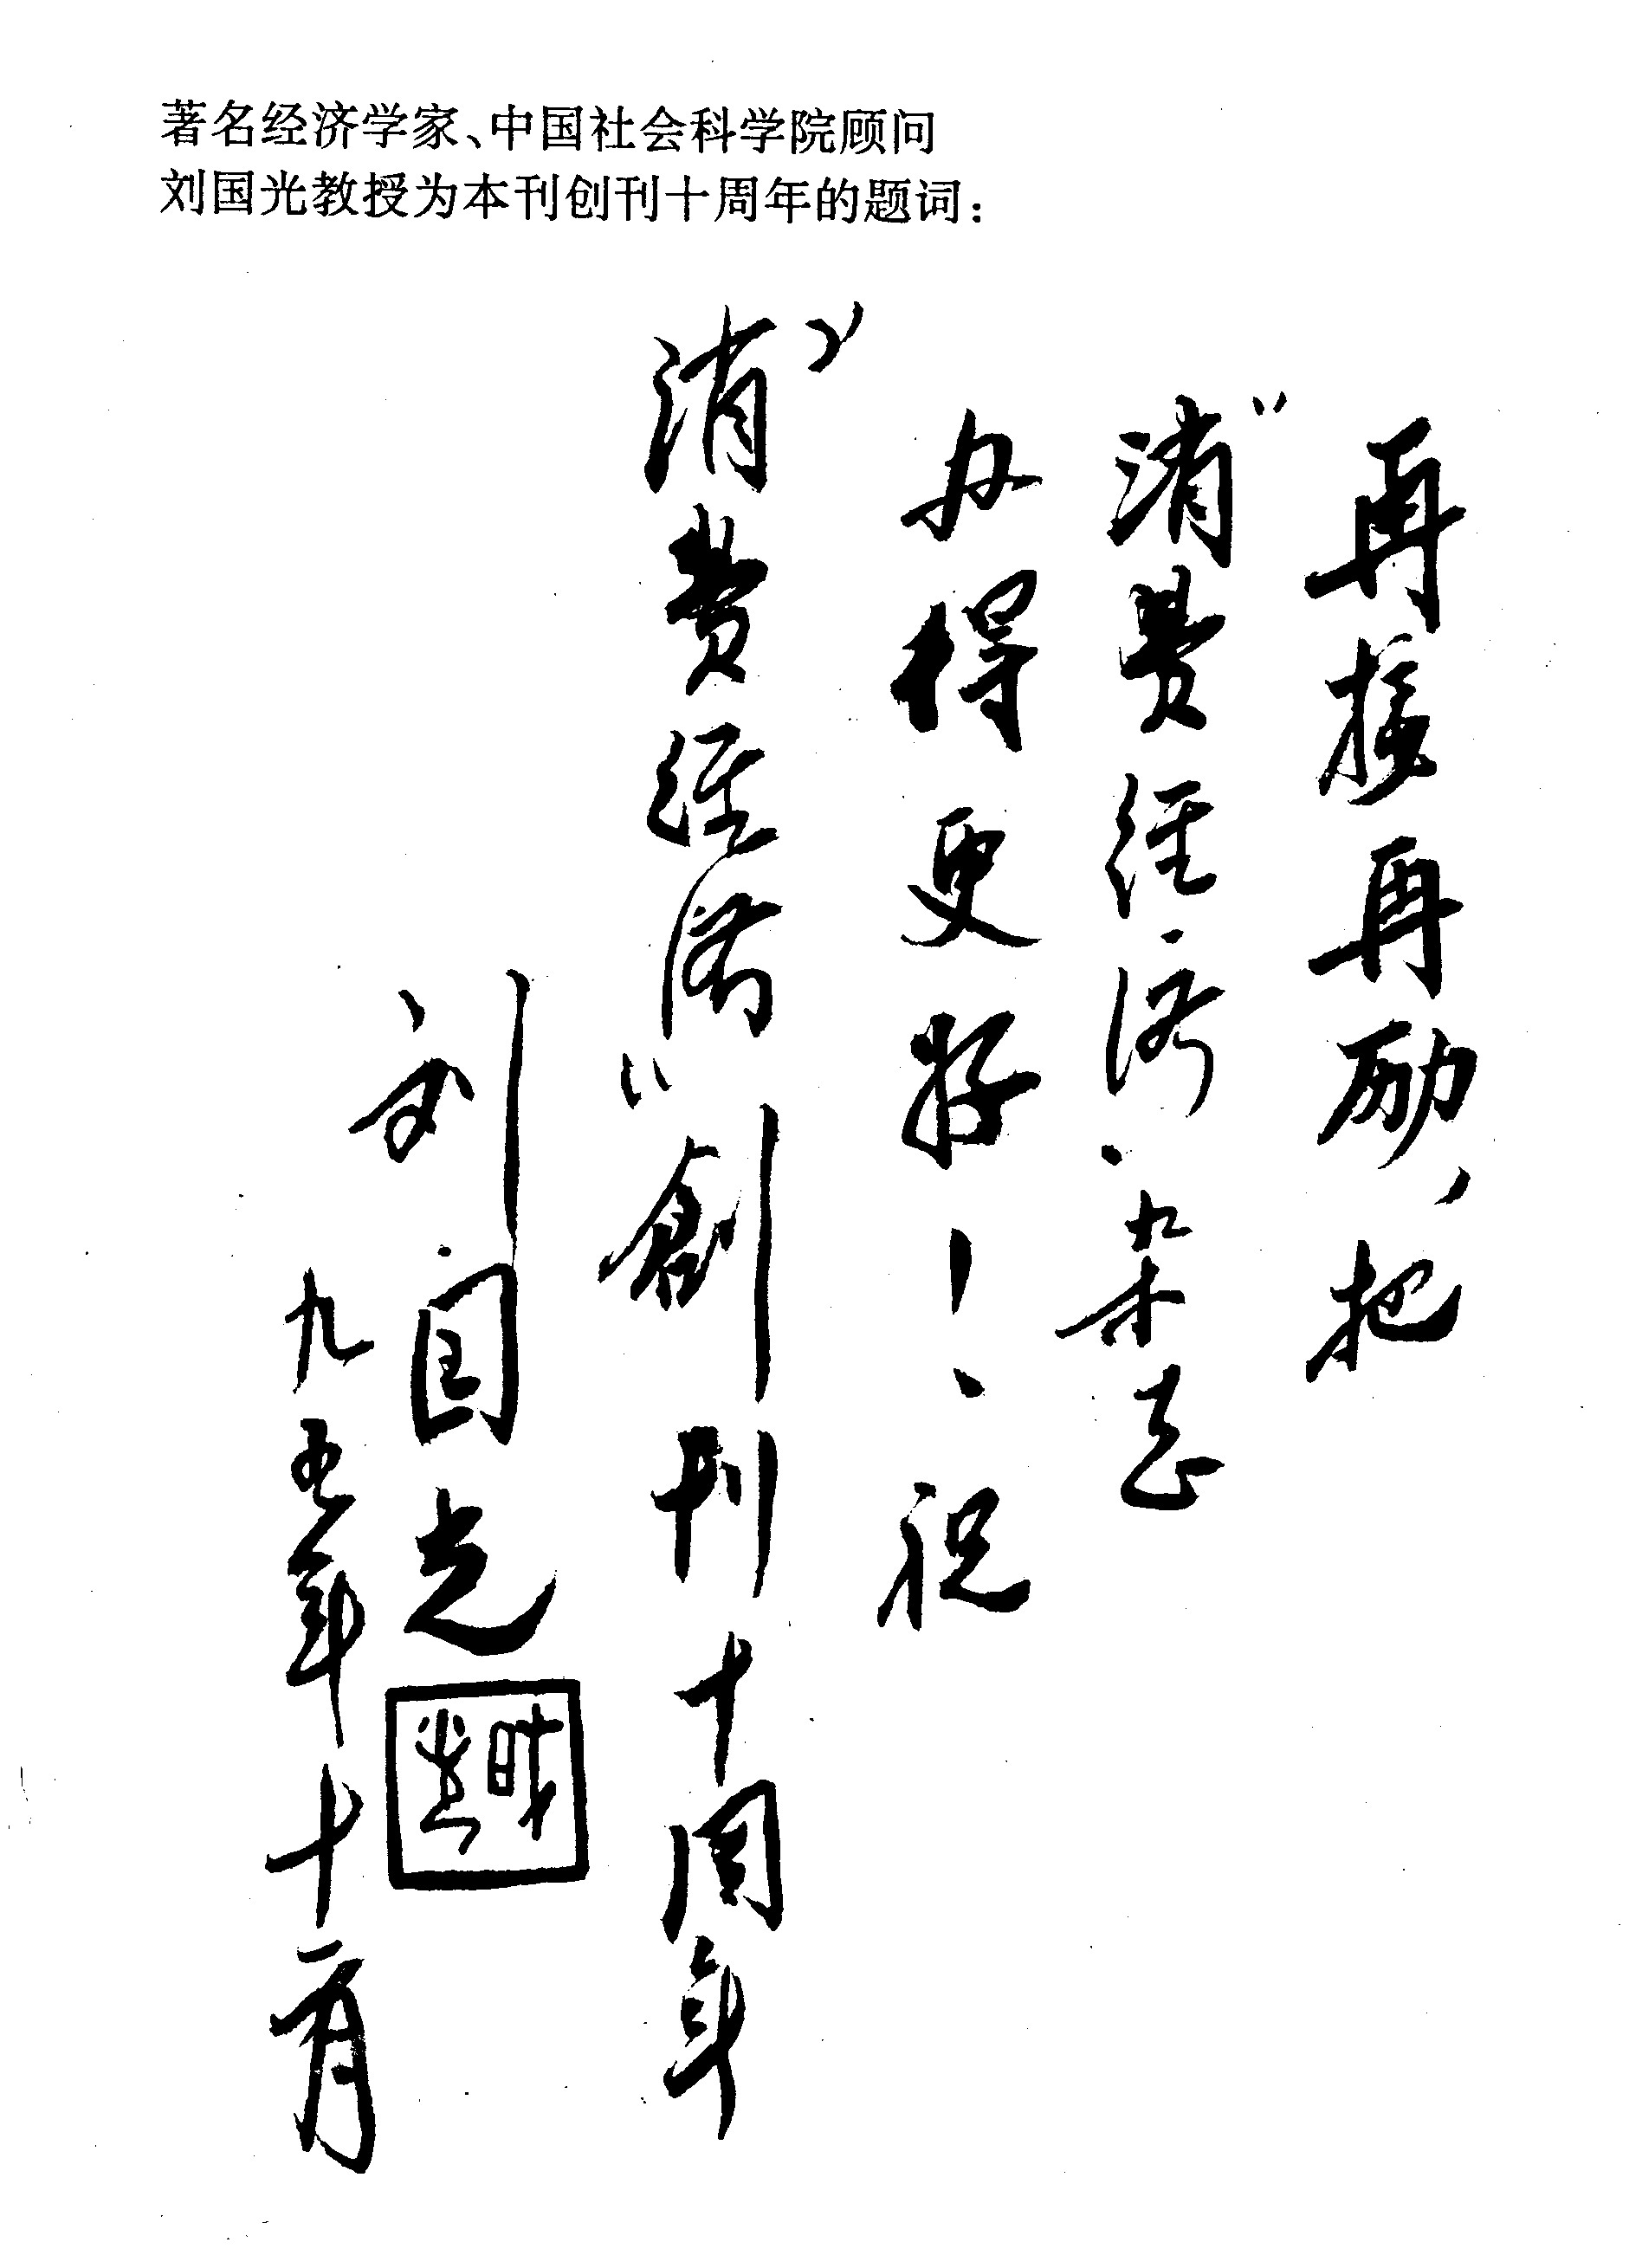 著名经济学家、中国社会科学院顾问
刘国光教授为本刊创刊十周年的题词：
再接再励，把
“消费经济”杂志
办得更好！祝
“消费经济”創刊十周年
刘国光
九五年十一月